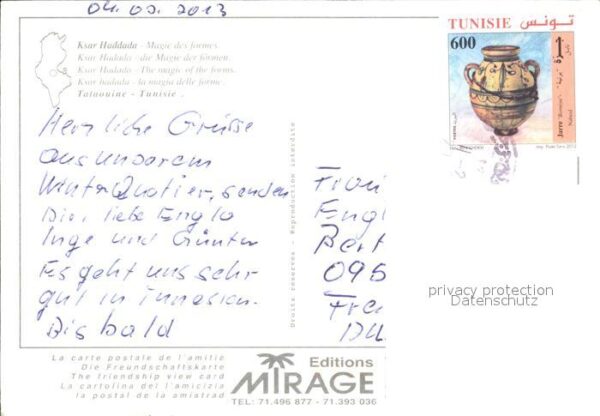 04.03.2013
Ksar Haddada - Magie des formes.
Ksar Hadada - die Magie der formen.
Ksar Hadada - The magic of the forms.
Ksar hadada - la magia delle forme.
Tataouine - Tunisie .
TUNISIE تونس
600
Jarre
Nabeul
Herzliche Grüsse
aus unserem
WinterQuatier, senden
Dir, liebe Engla
Inge und Günter
Es geht uns sehr
gut in Tunesien.
Bis bald
Droits reserves - Reproduction interdite
Frau
Engl
Bert
095
Fre
privacy protection
Datenschutz
La carte postale de l'amitie
Die Freundschaftskarte
The friendship view card
La cartolina del l'amicizia
la postal de la amistrad
Editions
MIRAGE
TEL: 71.496 877 - 71.393 036